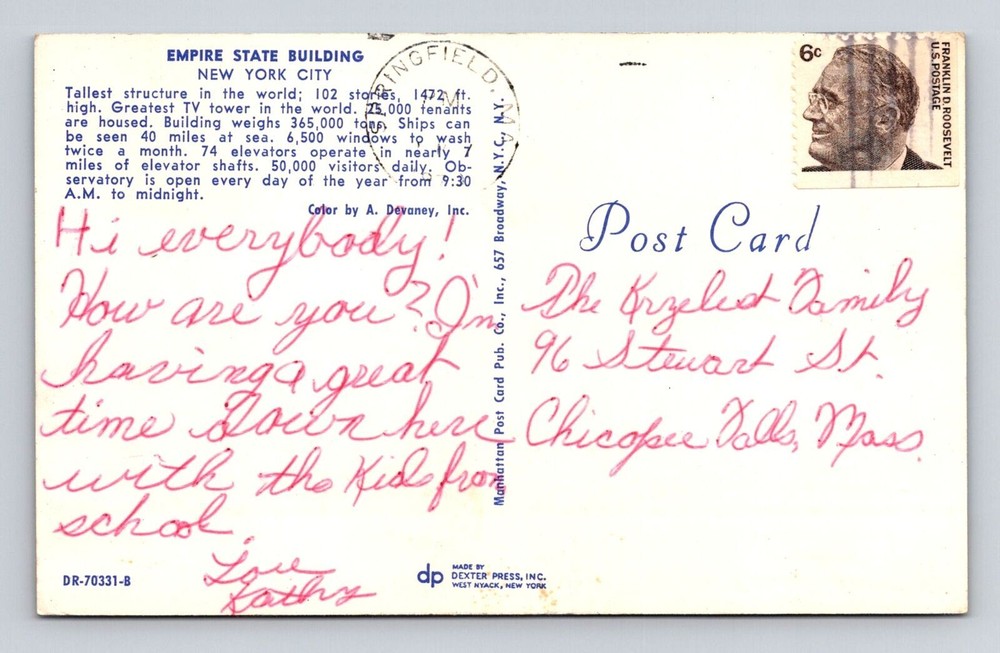 EMPIRE STATE BUILDING
NEW YORK CITY
Tallest structure in the world; 102 stories, 1472 ft.
high. Greatest TV tower in the world. 25,000 tenants
are housed. Building weighs 365,000 tons. Ships can
be seen 40 miles at sea. 6,500 windows to wash
twice a month. 74 elevators operate in nearly 7
miles of elevator shafts. 50,000 visitors daily. Ob-
servatory is open every day of the year from 9:30
A.M. to midnight.
Color by A. Devaney, Inc.
Hi everybody!
How are you? I'm
having a great
time down here
with the kids from
school.
Love
Kathy
DR-70331-B
dp
MADE BY
DEXTER PRESS, INC.
WEST NYACK, NEW YORK
Manhattan Post Card Pub. Co., Inc., 657 Broadway, N.Y.C., N.Y.
SPRINGFIELD, MA
6c
FRANKLIN D. ROOSEVELT
U.S. POSTAGE
Post Card
The Family
96 Stewart St.
Chicopee Falls, Mass.